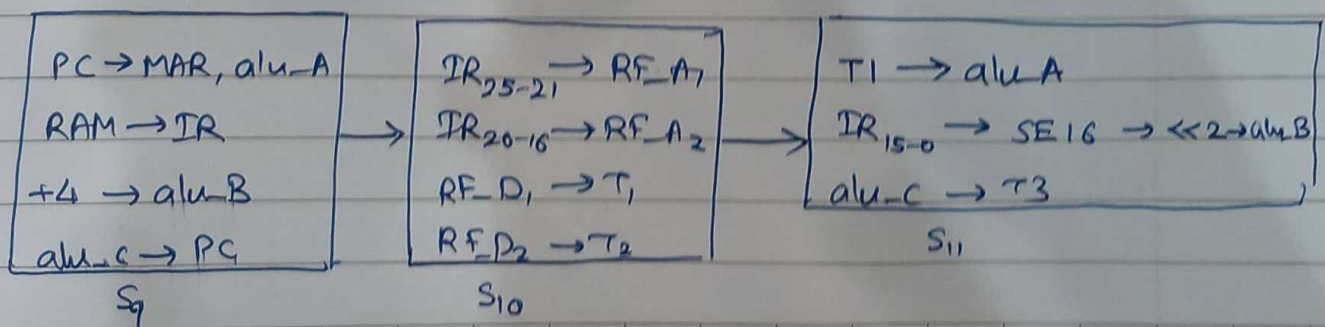 PC → MAR, alu_A
RAM → IR
+4 → alu_B
alu_C → PC
S9
IR25-21 → RF_A1
IR20-16 → RF_A2
RF_D1 → T1
RF_D2 → T2
S10
T1 → alu_A
IR15-0 → SE16 → <<2 → alu_B
alu_C → T3
S11